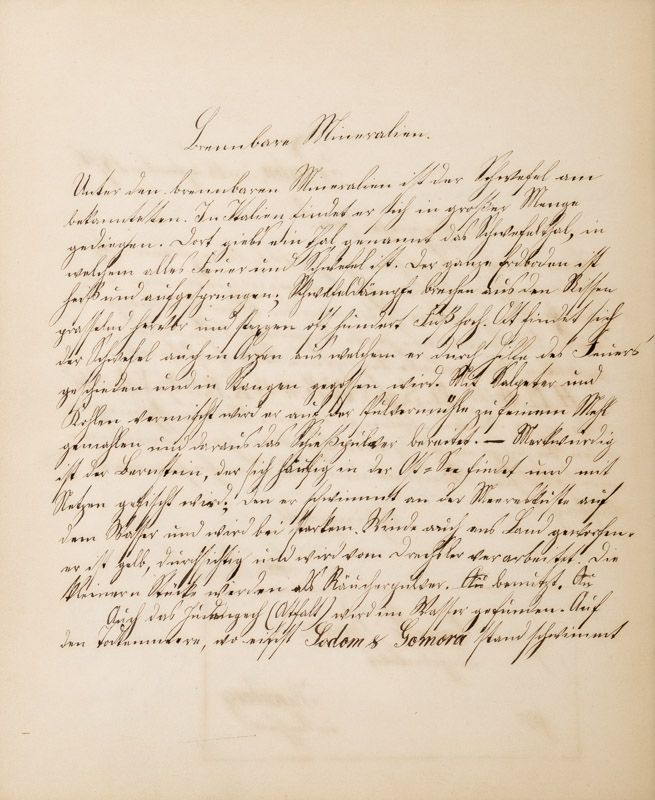 Brennbare Mineralien.
Unter den brennbaren Mineralien ist der Schwefel am
bekanntesten. In Italien findet er sich in großer Menge
gediegen. Dort giebts ein Thal, genannt das Schwefelthal, in
welchem alles Feuer und Schwefel ist. Der ganze Erdboden ist
heiß und aufgesprungen; Schwefeldämpfe brechen aus den Rissen
prasselnd hervor und steigen oft hundert Fuß hoch. Oft findet sich
der Schwefel auch in Erzen aus welchem er durch Hülfe des Feuers
geschieden und in Stangen gegossen wird. Mit Salpeter und
Kohlen vermischt wird er auf der Pulvermühle zu feinem Mehl
gemahlen und daraus das Schießpulver bereitet. — Merkwürdig
ist der Bernstein, der sich häufig in der Ost=See findet und mit
Netzen gefischt wird; den er schwimmt an der Meeresküste auf
dem Wasser und wird bei starkem Winde auch ans Land geworfen.
er ist gelb, durchsichtig und wird vom Drechsler verarbeitet. Die
kleinern Stücke werden als Räucherpulver benutzt.
Auch das Judenpech (Asfalt) wird im Wasser gefunden. Auf
den Todtenmeere, wo einst Sodom & Gomora stand schwimmt